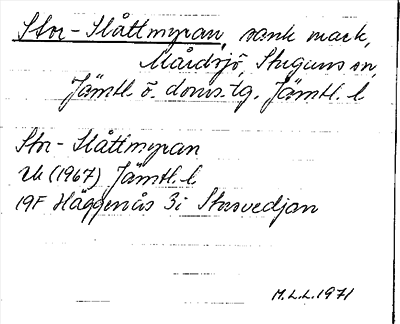 Stor-Slåttmyran, sank mark,
Mårdsjö, Stuguns sn,
Jämtl. ö. doms.tg. Jämtl. l
Stor-Slåttmyran
Uk (1967) Jämtl. l
19F Häggenås 3i Storvedjan
M.L.L. 1971